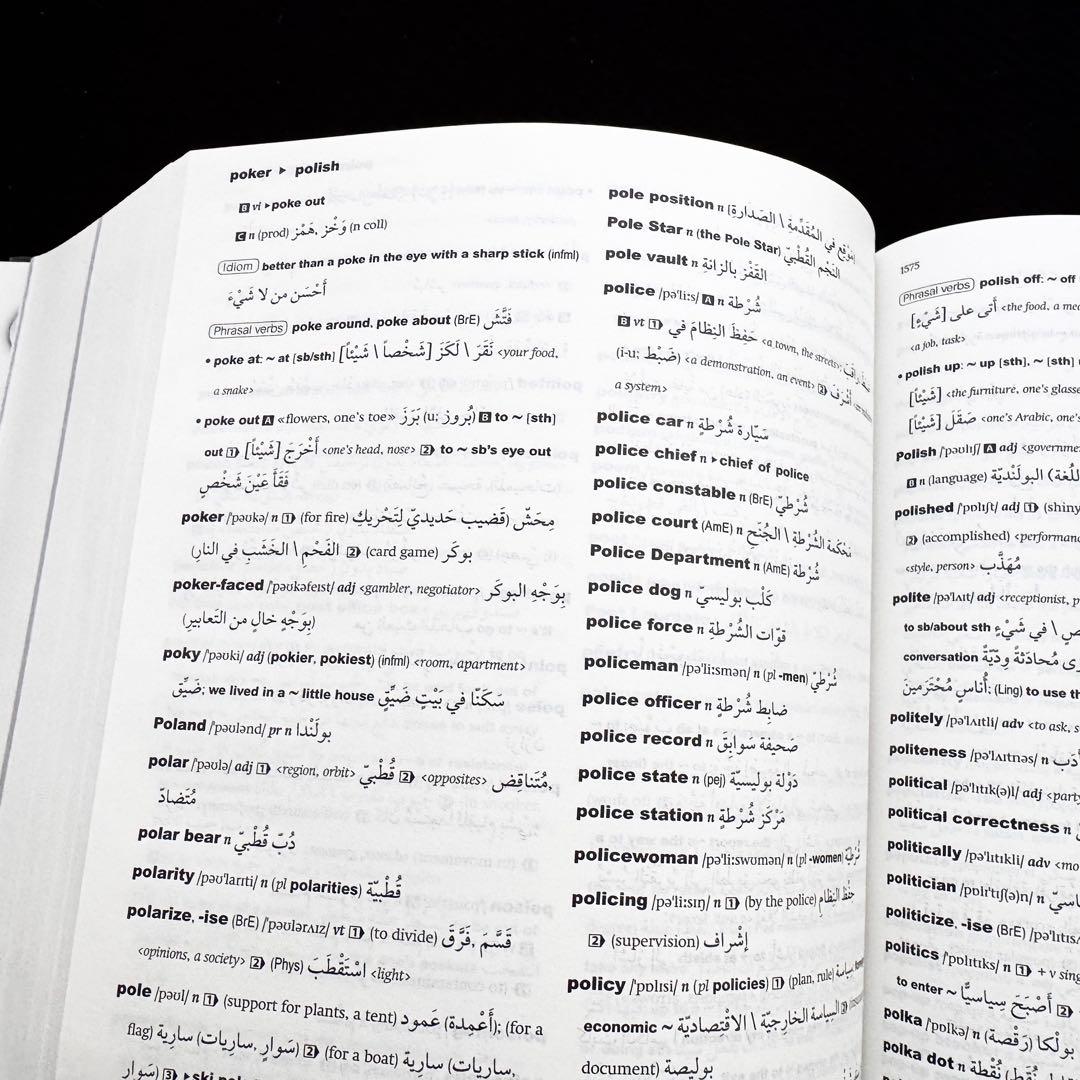 poker ▸ polish
B vi ▸ poke out
C n (prod) وَخْز, هَمْز (n coll)
Idiom better than a poke in the eye with a sharp stick (infml)
أَحْسَن من لا شَيْءَ
Phrasal verbs poke around, poke about (BrE) فَتَّشَ
• poke at: ~ at [sb/sth] نَقَرَ \ لَكَزَ [شَخْصاً \ شَيْئاً] <your food,
a snake>
• poke out A «flowers, one's toe» بَرَزَ (u; بُروز) B to ~ [sth]
out 1 أَخْرَجَ [شَيْئاً] <one's head, nose> 2 to ~ sb's eye out
فَقَأَ عَيْنَ شَخْصٍ
poker /'pəʊkə/ n 1 (for fire) مِحَشّ (قَضيب حَديديّ لِتَحْريكِ
الفَحْمِ \ الخَشَبِ في النارِ) 2 (card game) بوكَر
poker-faced /'pəʊkəfeɪst/ adj <gambler, negotiator> بِوَجْهِ البوكَر
(بِوَجْهٍ خالٍ من التَعابيرِ)
poky /'pəʊki/ adj (pokier, pokiest) (infml) <room, apartment>
ضَيِّق; we lived in a ~ little house سَكَنّا في بَيْتٍ ضَيِّقٍ
Poland /'pəʊlənd/ pr n بولَنْدا
polar /'pəʊlə/ adj 1 <region, orbit> قُطْبيّ 2 <opposites> مُتَناقِض,
مُتَضادّ
polar bear n دُبّ قُطْبيّ
polarity /pəʊ'lærɪti/ n (pl polarities) قُطْبيّة
polarize, -ise (BrE) /'pəʊləraɪz/ vt 1 (to divide) قَسَّمَ, فَرَّقَ
<opinions, a society> 2 (Phys) اسْتَقْطَبَ <light>
pole /pəʊl/ n 1 (support for plants, a tent) عَمود (أَعْمِدة); (for a
flag) سارية (سَوارٍ, ساريات) 2 (for a boat) سارية (ساريات,
سَوارٍ) 3 ▸ ski pole
pole position n مَوْقِع في المُقَدِّمةِ \ الصَدارةِ
Pole Star n (the Pole Star) النَجْم القُطْبيّ
pole vault n القَفْز بالزانةِ
police /pə'li:s/ A n شُرْطة
B vt 1 حَفِظَ النِظامَ في <a town, the streets>;
(i-u; ضَبْط) <a demonstration, an event> 2 أَشْرَفَ
a system>
police car n سَيّارة شُرْطةٍ
police chief n ▸ chief of police
police constable n (BrE) شُرْطيّ
police court (AmE) n مَحْكَمة الشُرْطةِ \ الجُنَحِ
Police Department n (AmE) شُرْطة
police dog n كَلْب بوليسيّ
police force n قوّات الشُرْطةِ
policeman /pə'li:smən/ n (pl -men) شُرْطيّ
police officer n ضابِط شُرْطةٍ
police record n صَحيفة سَوابِقَ
police state n (pej) دَوْلة بوليسيّة
police station n مَرْكَز شُرْطةٍ
policewoman /pə'li:swʊmən/ n (pl -women)
policing /pə'li:sɪŋ/ n 1 (by the police) حِفْظ النِظامِ
2 (supervision) إشْراف
policy /'pɒlɪsi/ n (pl policies) 1 (plan, rule) سياسة
economic ~ السياسة الخارِجيّة \ الاقْتِصاديّة
document) بوليصة
1575
Phrasal verbs polish off: ~ off
أَتى على [شَيْءٍ] <the food, a mea
<a job, task>
• polish up: ~ up [sth], ~ [sth]
[شَيْئاً] <the furniture, one's glasse
صَقَلَ [شَيْئاً] <one's Arabic, one's
Polish /'pəʊlɪʃ/ A adj <governme
B n (language) البولَنْديّة (اللُغة)
polished /'pɒlɪʃt/ adj 1 (shiny
2 (accomplished) <performanc
<style, person> مُهَذَّب
polite /pə'laɪt/ adj <receptionist, p
to sb/about sth في شَيْءٍ
conversation مُحادَثةً وِدّيّةً
أُناس مُحْتَرَمينَ; (Ling) to use th
politely /pə'laɪtli/ adv <to ask, s
politeness /pə'laɪtnəs/ n
political /pə'lɪtɪk(ə)l/ adj <party
political correctness n
politically /pə'lɪtɪkli/ adv <mo
politician /pɒlɪ'tɪʃ(ə)n/ n
politicize, -ise (BrE) /pə'lɪtɪs
politics /'pɒlɪtɪks/ n 1 + v sing
to enter ~ أَصْبَحَ سِياسيًّا 2
polka /'pɒlkə/ n بولْكا (رَقْصة)
polka dot n نُقْطة